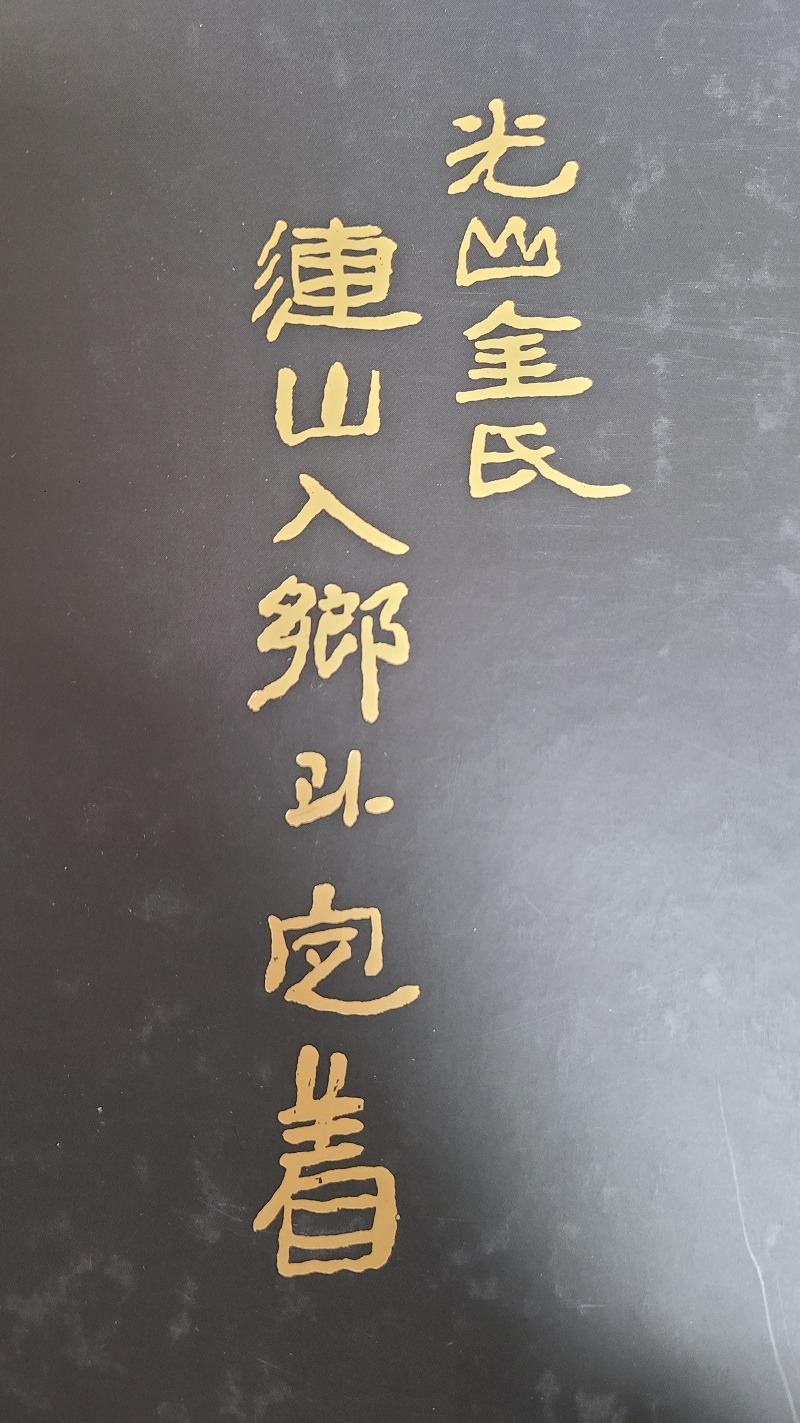 光山金氏
連山入鄕과 定着